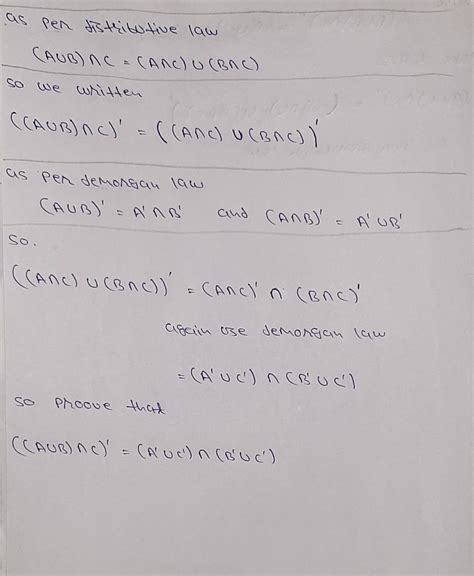 as per distributive law
(A∪B)∩C = (A∩C) ∪ (B∩C)
so we written
((A∪B)∩C)' = ((A∩C) ∪ (B∩C))'
as per demorgan law
(A∪B)' = A'∩B' and (A∩B)' = A'∪B'
so.
((A∩C) ∪ (B∩C))' = (A∩C)' ∩ (B∩C)'
again use demorgan law
= (A'∪C') ∩ (B'∪C')
so proove that
((A∪B)∩C)' = (A'∪C') ∩ (B'∪C')